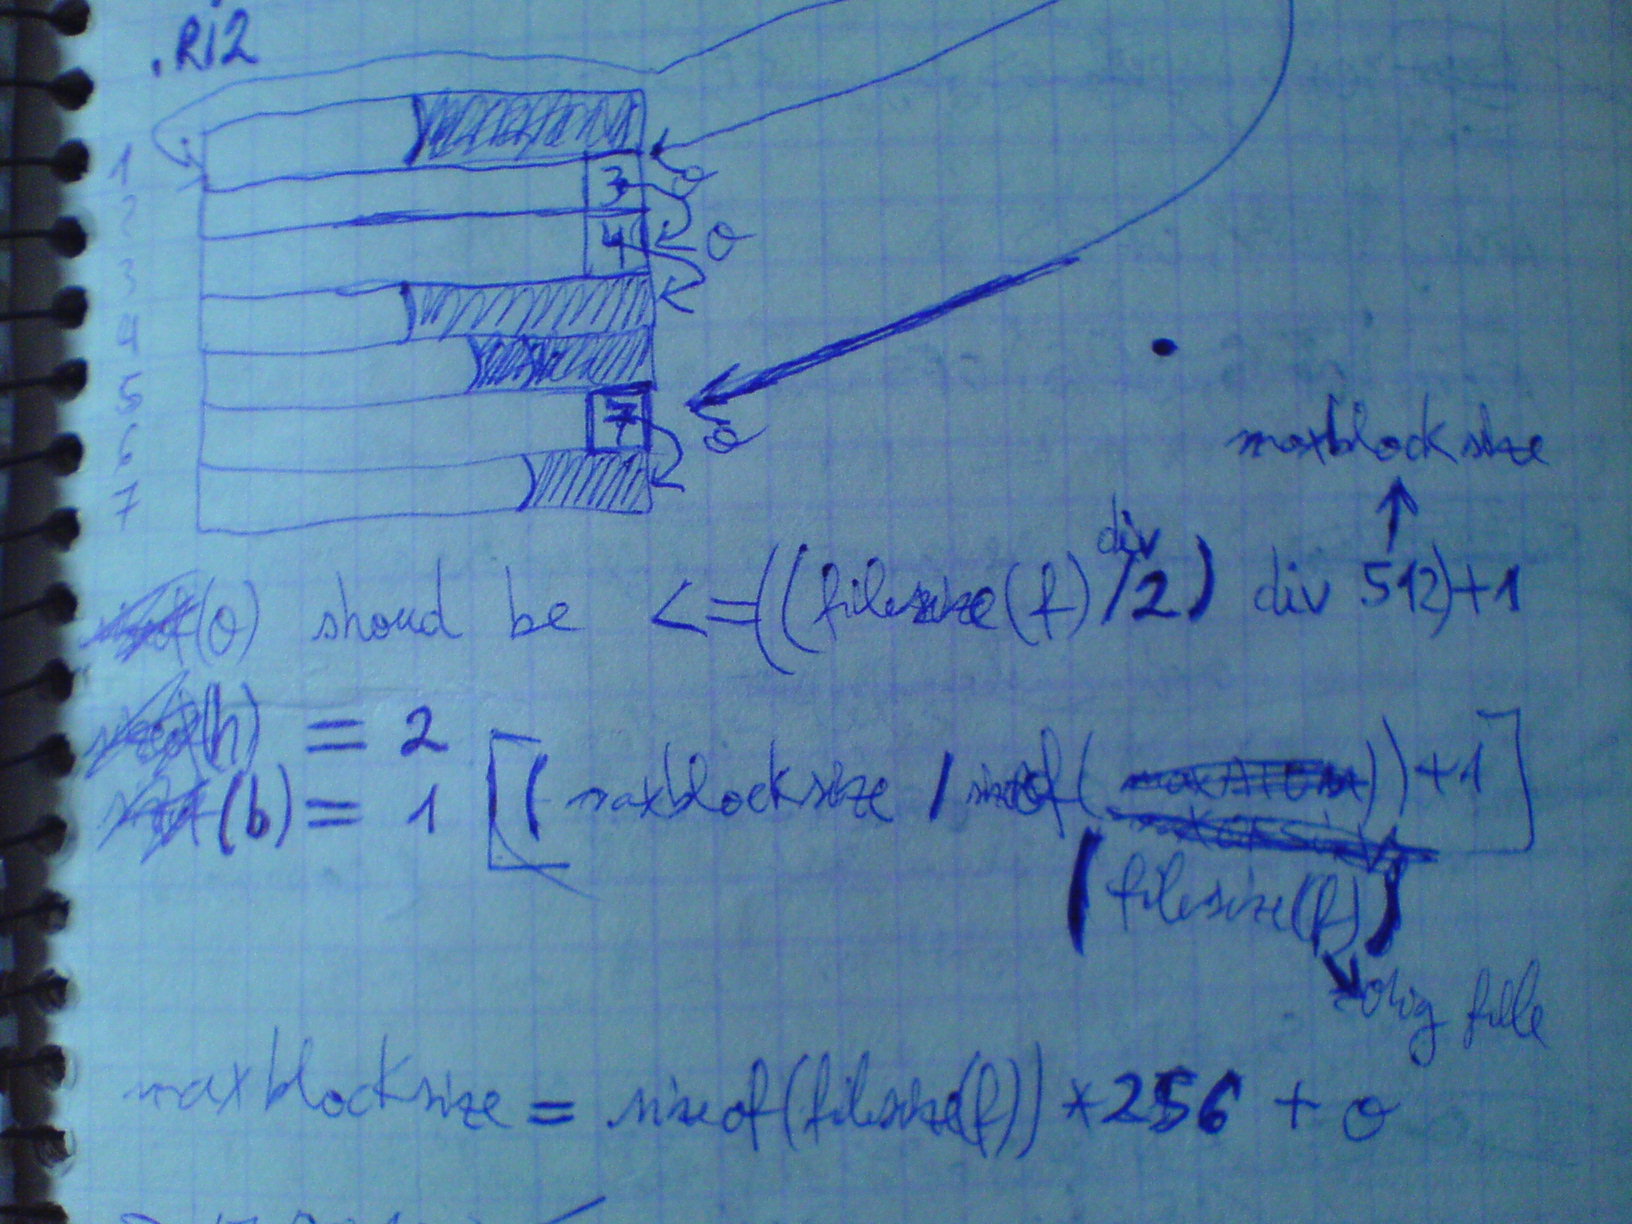 .Ri2
1
3 o
2
4 o
3
4
5
7 o
6
7
maxblocksize
div
(o) shoud be <=((filesize(f)/2) div 512)+1
(h) = 2
(b) = 1 [(maxblocksize / sizeof( ))+1]
(filesize(f))
orig file
maxblocksize = sizeof(filesize(f)) *256 + o